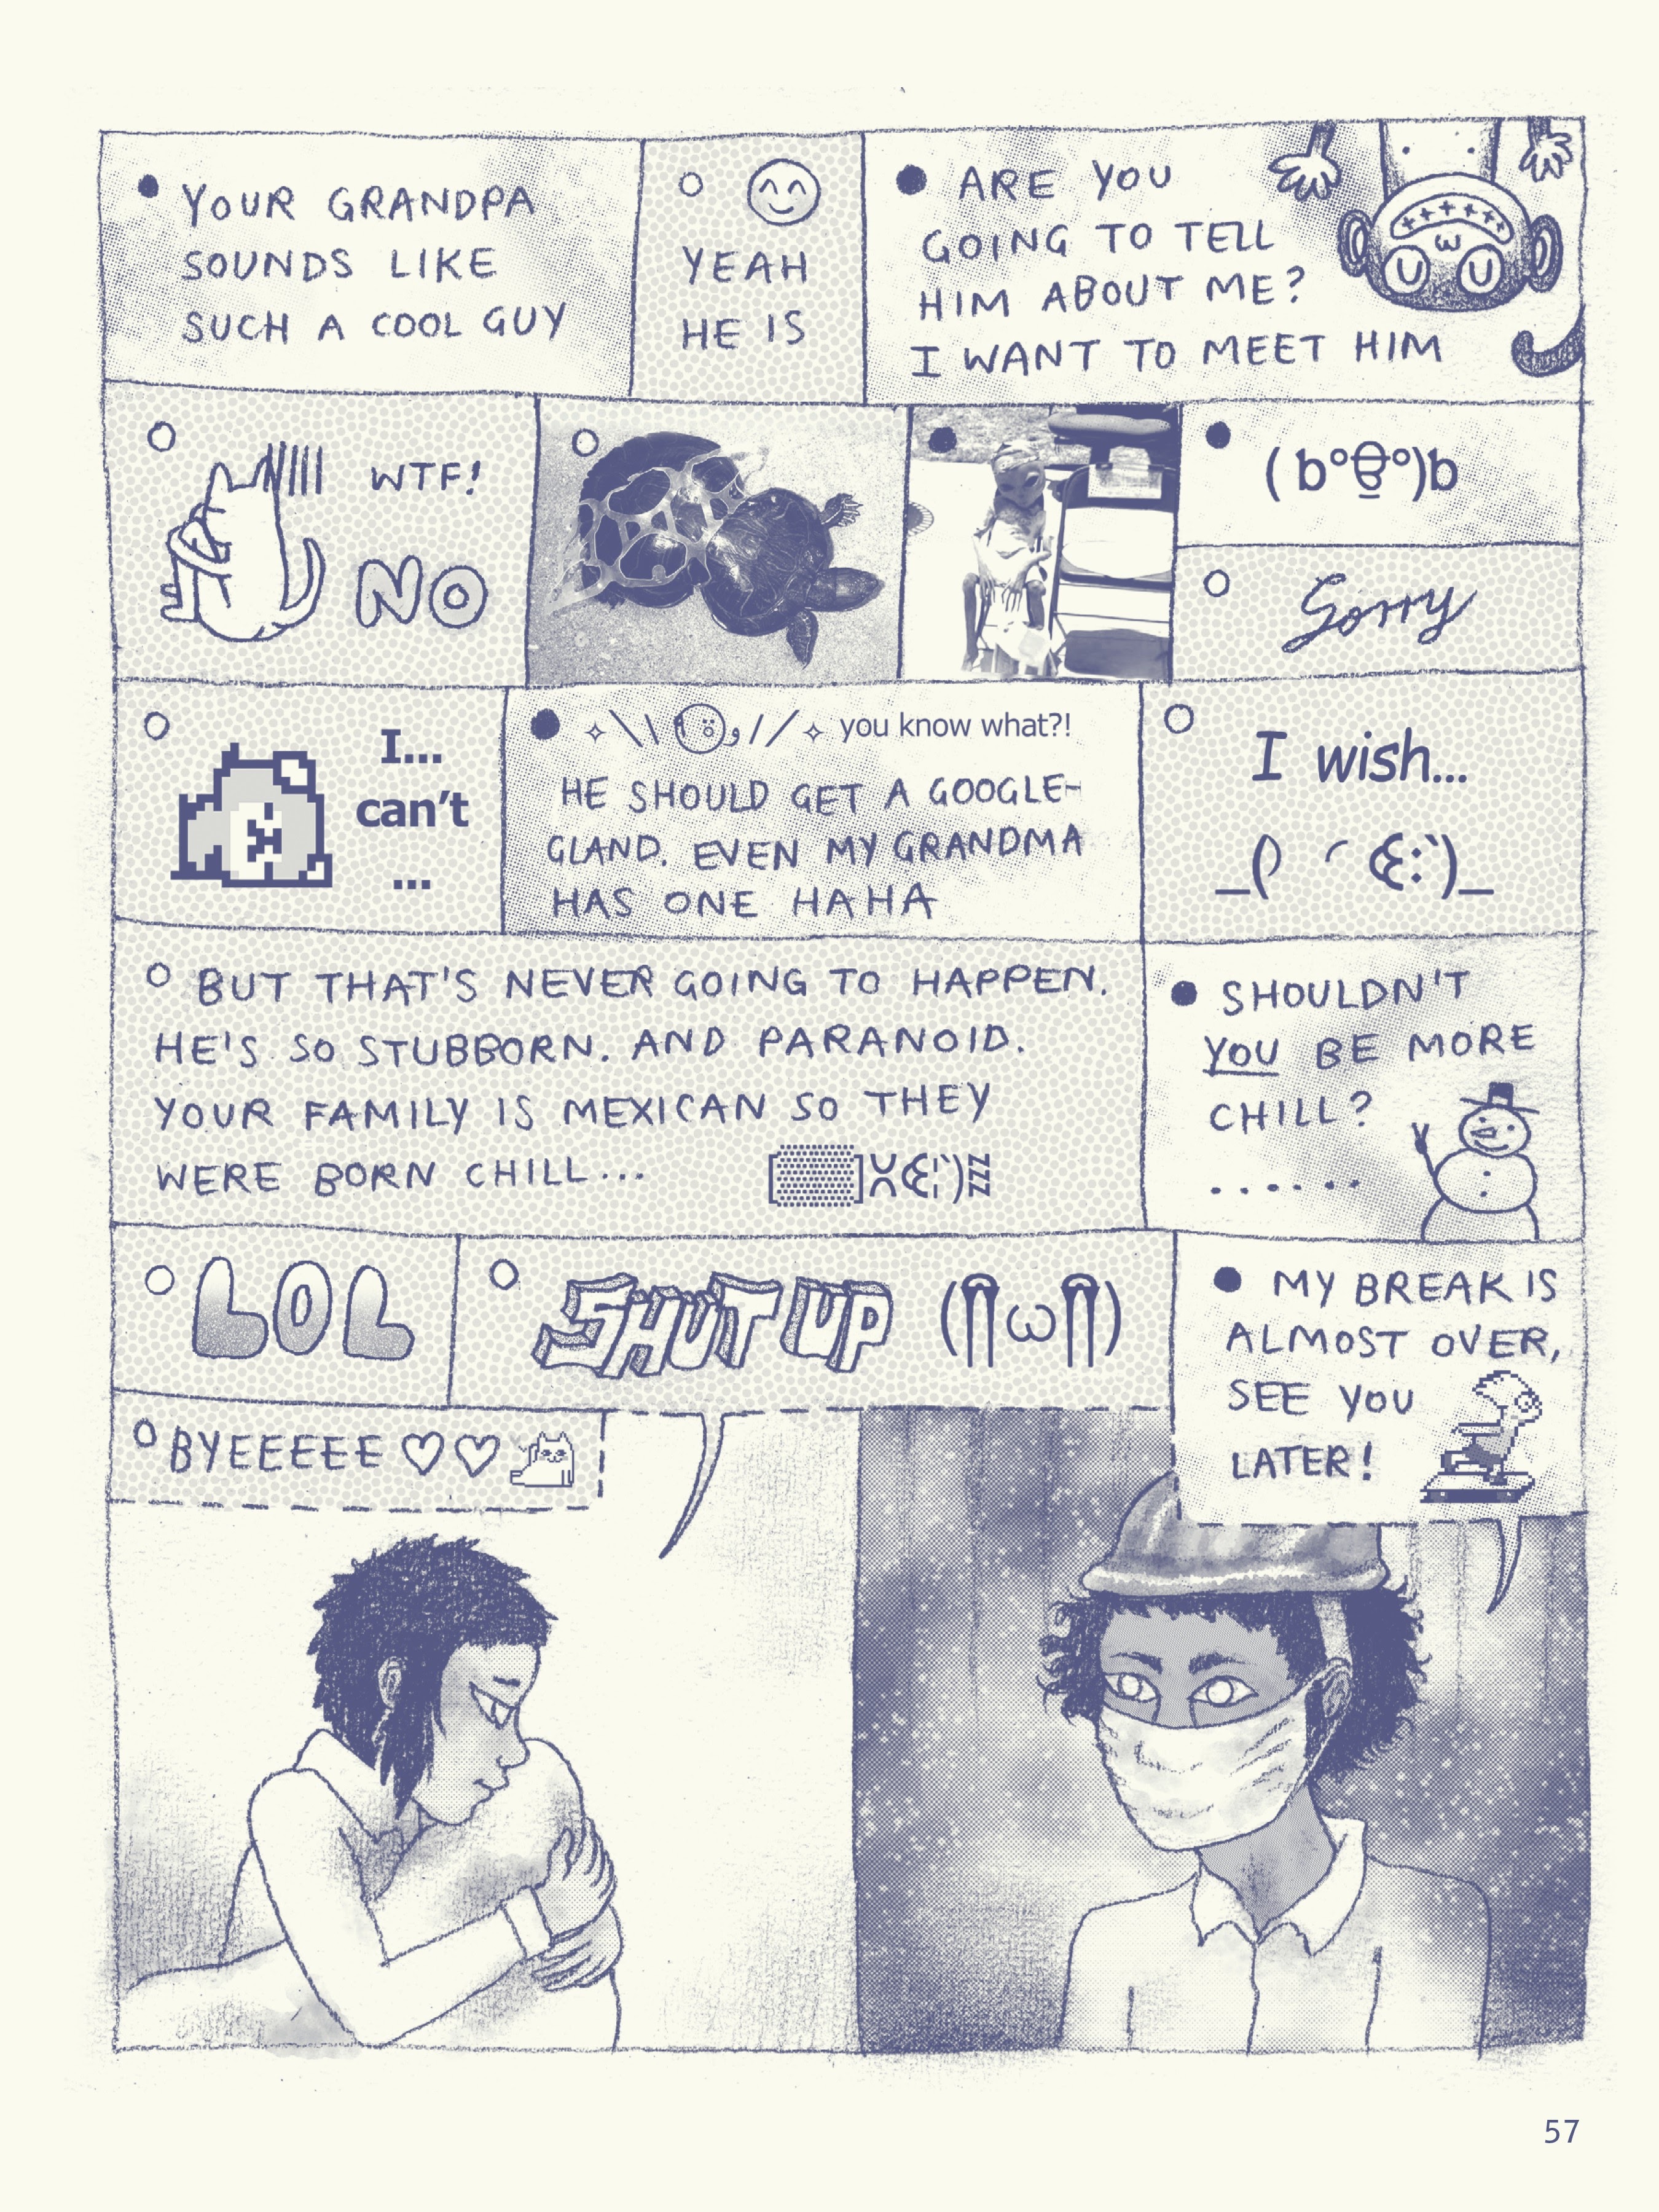 YOUR GRANDPA
SOUNDS LIKE
SUCH A COOL GUY
YEAH
HE IS
ARE YOU
GOING TO TELL
HIM ABOUT ME?
I WANT TO MEET HIM
WTF!
NO
( b°	°)b
Sorry
I...
can't
...
you know what?!
HE SHOULD GET A GOOGLE-
GLAND. EVEN MY GRANDMA
HAS ONE HAHA
I wish...
BUT THAT'S NEVER GOING TO HAPPEN.
HE'S SO STUBBORN. AND PARANOID.
YOUR FAMILY IS MEXICAN SO THEY
WERE BORN CHILL...
SHOULDN'T
YOU BE MORE
CHILL?
......
LOL
SHUT UP
MY BREAK IS
ALMOST OVER,
SEE YOU
LATER!
BYEEEEE ♡♡
57